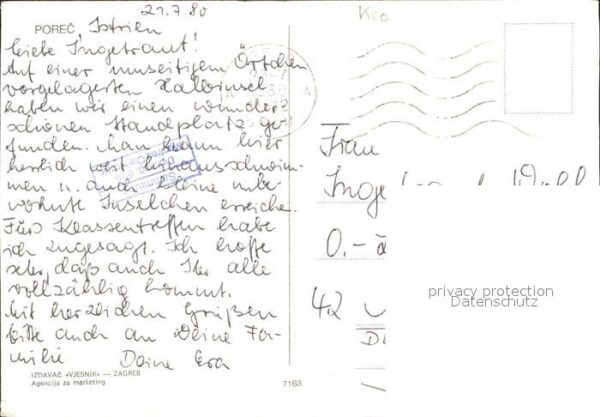 21.7.80
POREČ, Istrien
Liebe Ingetraut!
Auf einer umseitigem Örtchen
vorgelagerten Halbinsel
haben wir einen wunder=
schönen Standplatz ge=
funden. Man kann hier
herrlich weit hinausschwim-
men u. auch kleine unbe=
wohnte Inselchen erreichen.
Fürs Klassentreffen habe
ich zugesagt. Ich hoffe
sehr, daß auch Ihr alle
vollzählig kommt.
Mit herzlichen Grüßen
bitte auch an Deine Fa=
milie Deine Eva
IZDAVAČ »VJESNIK« — ZAGREB
Agencija za marketing
7163
Kro
Frau
Inge
0.-
42
privacy protection
Datenschutz